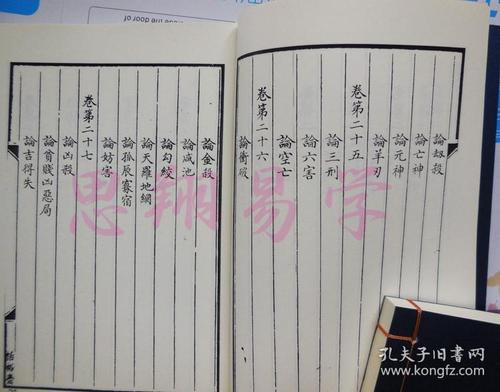 論劫殺
論亡神
論元神
論羊刃
卷第二十五
論三刑
論六害
論空亡
卷第二十六
論衝破
論金殺
論咸池
論勾絞
論天羅地網
論孤辰寡宿
論妨害
卷第二十七
論凶殺
論貧賤凶惡局
論吉得失
思翔易学
孔夫子旧书网
www.kongfz.com